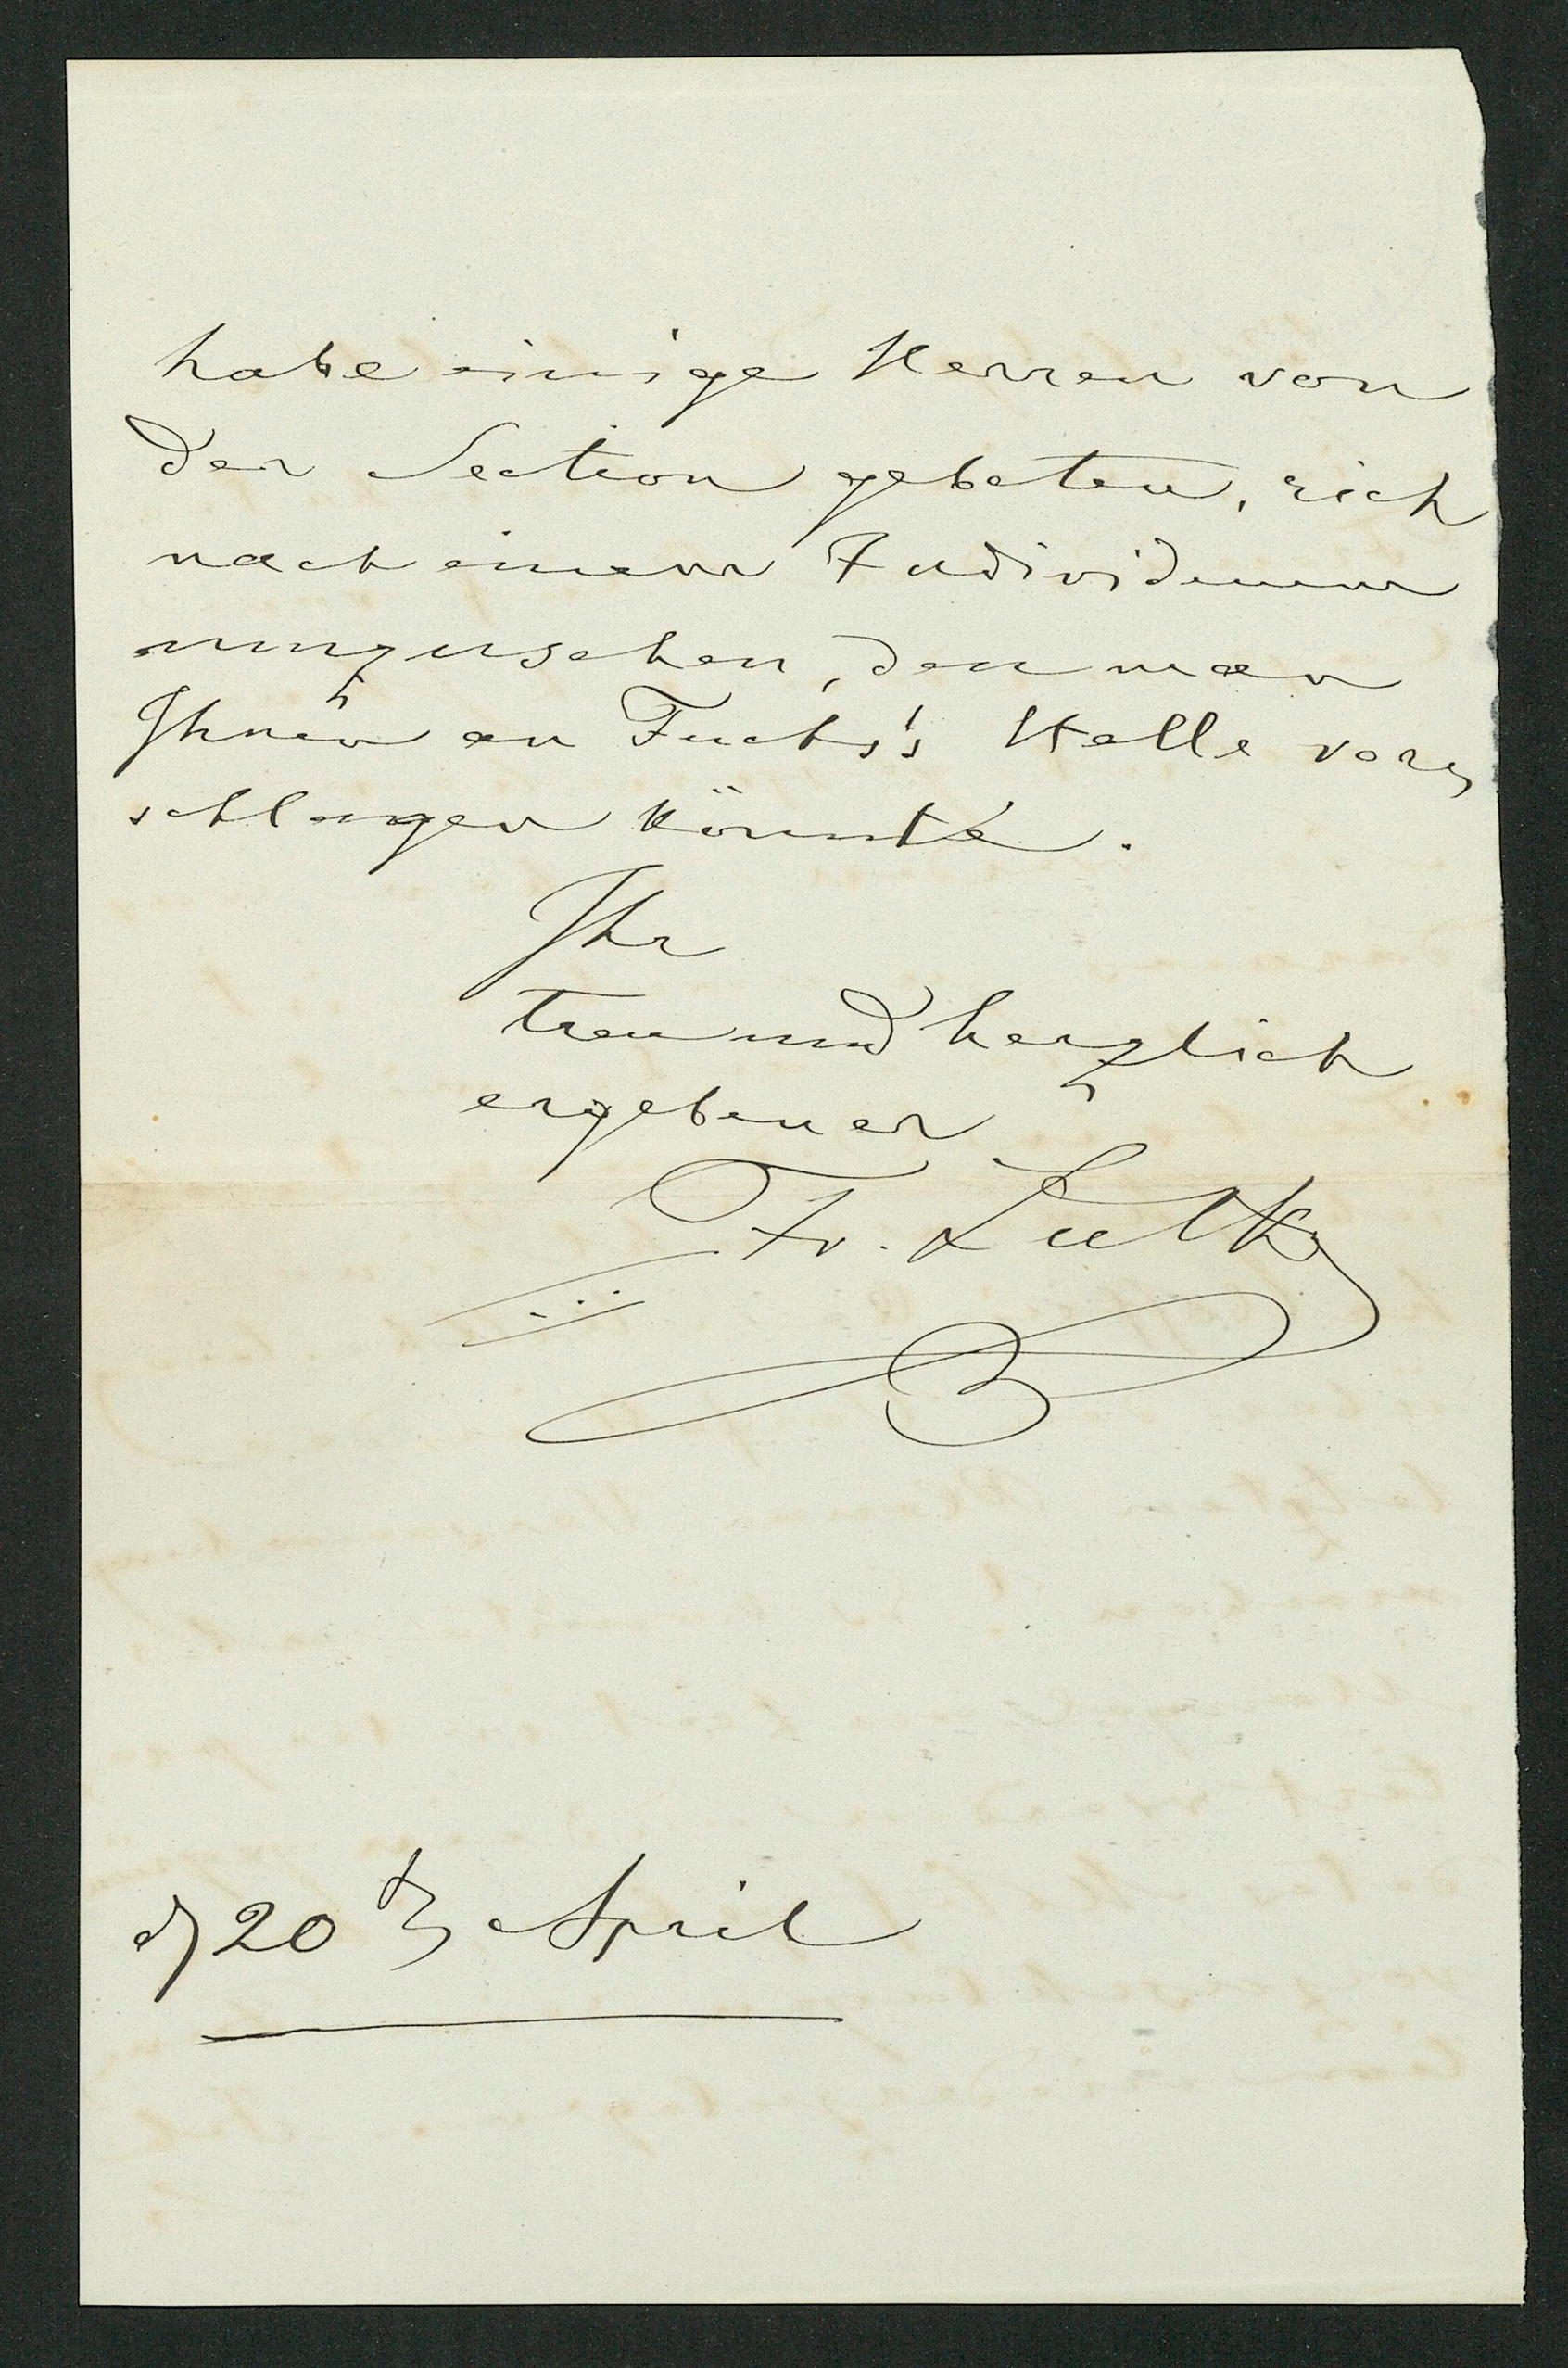 habe einige Herren von
der Section gebeten, sich
nach einem Individuum
umzusehen, den man
Ihnen an Fuchs's Stelle vor-
schlagen könnte.
Ihr
treu und herzlich
ergebener
Fr. Lütke
d 20 April